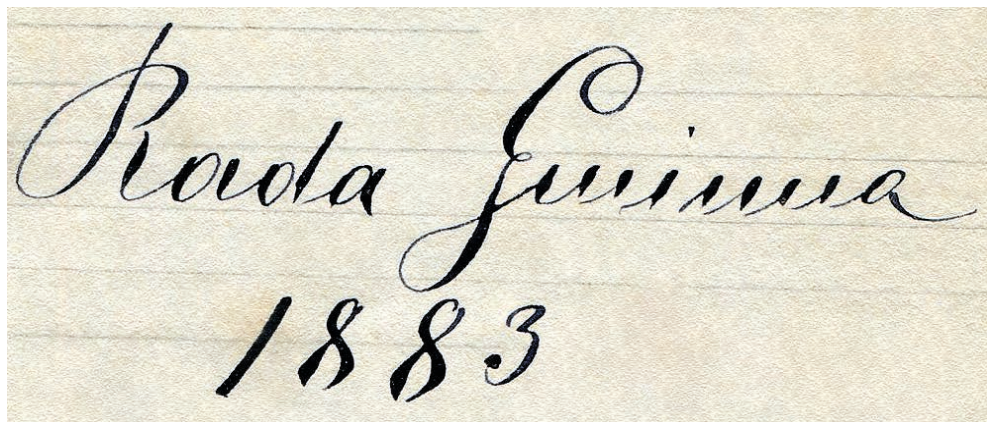 Rada Gminna
1883